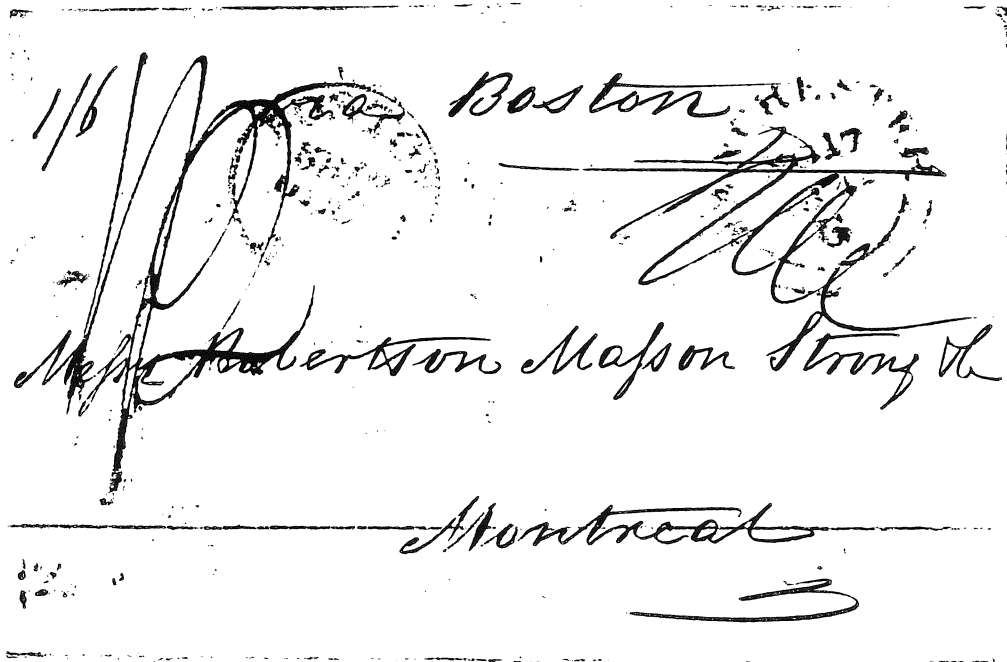 1/6 via Boston
17
Messrs Robertson Masson Strong & Co
Montreal